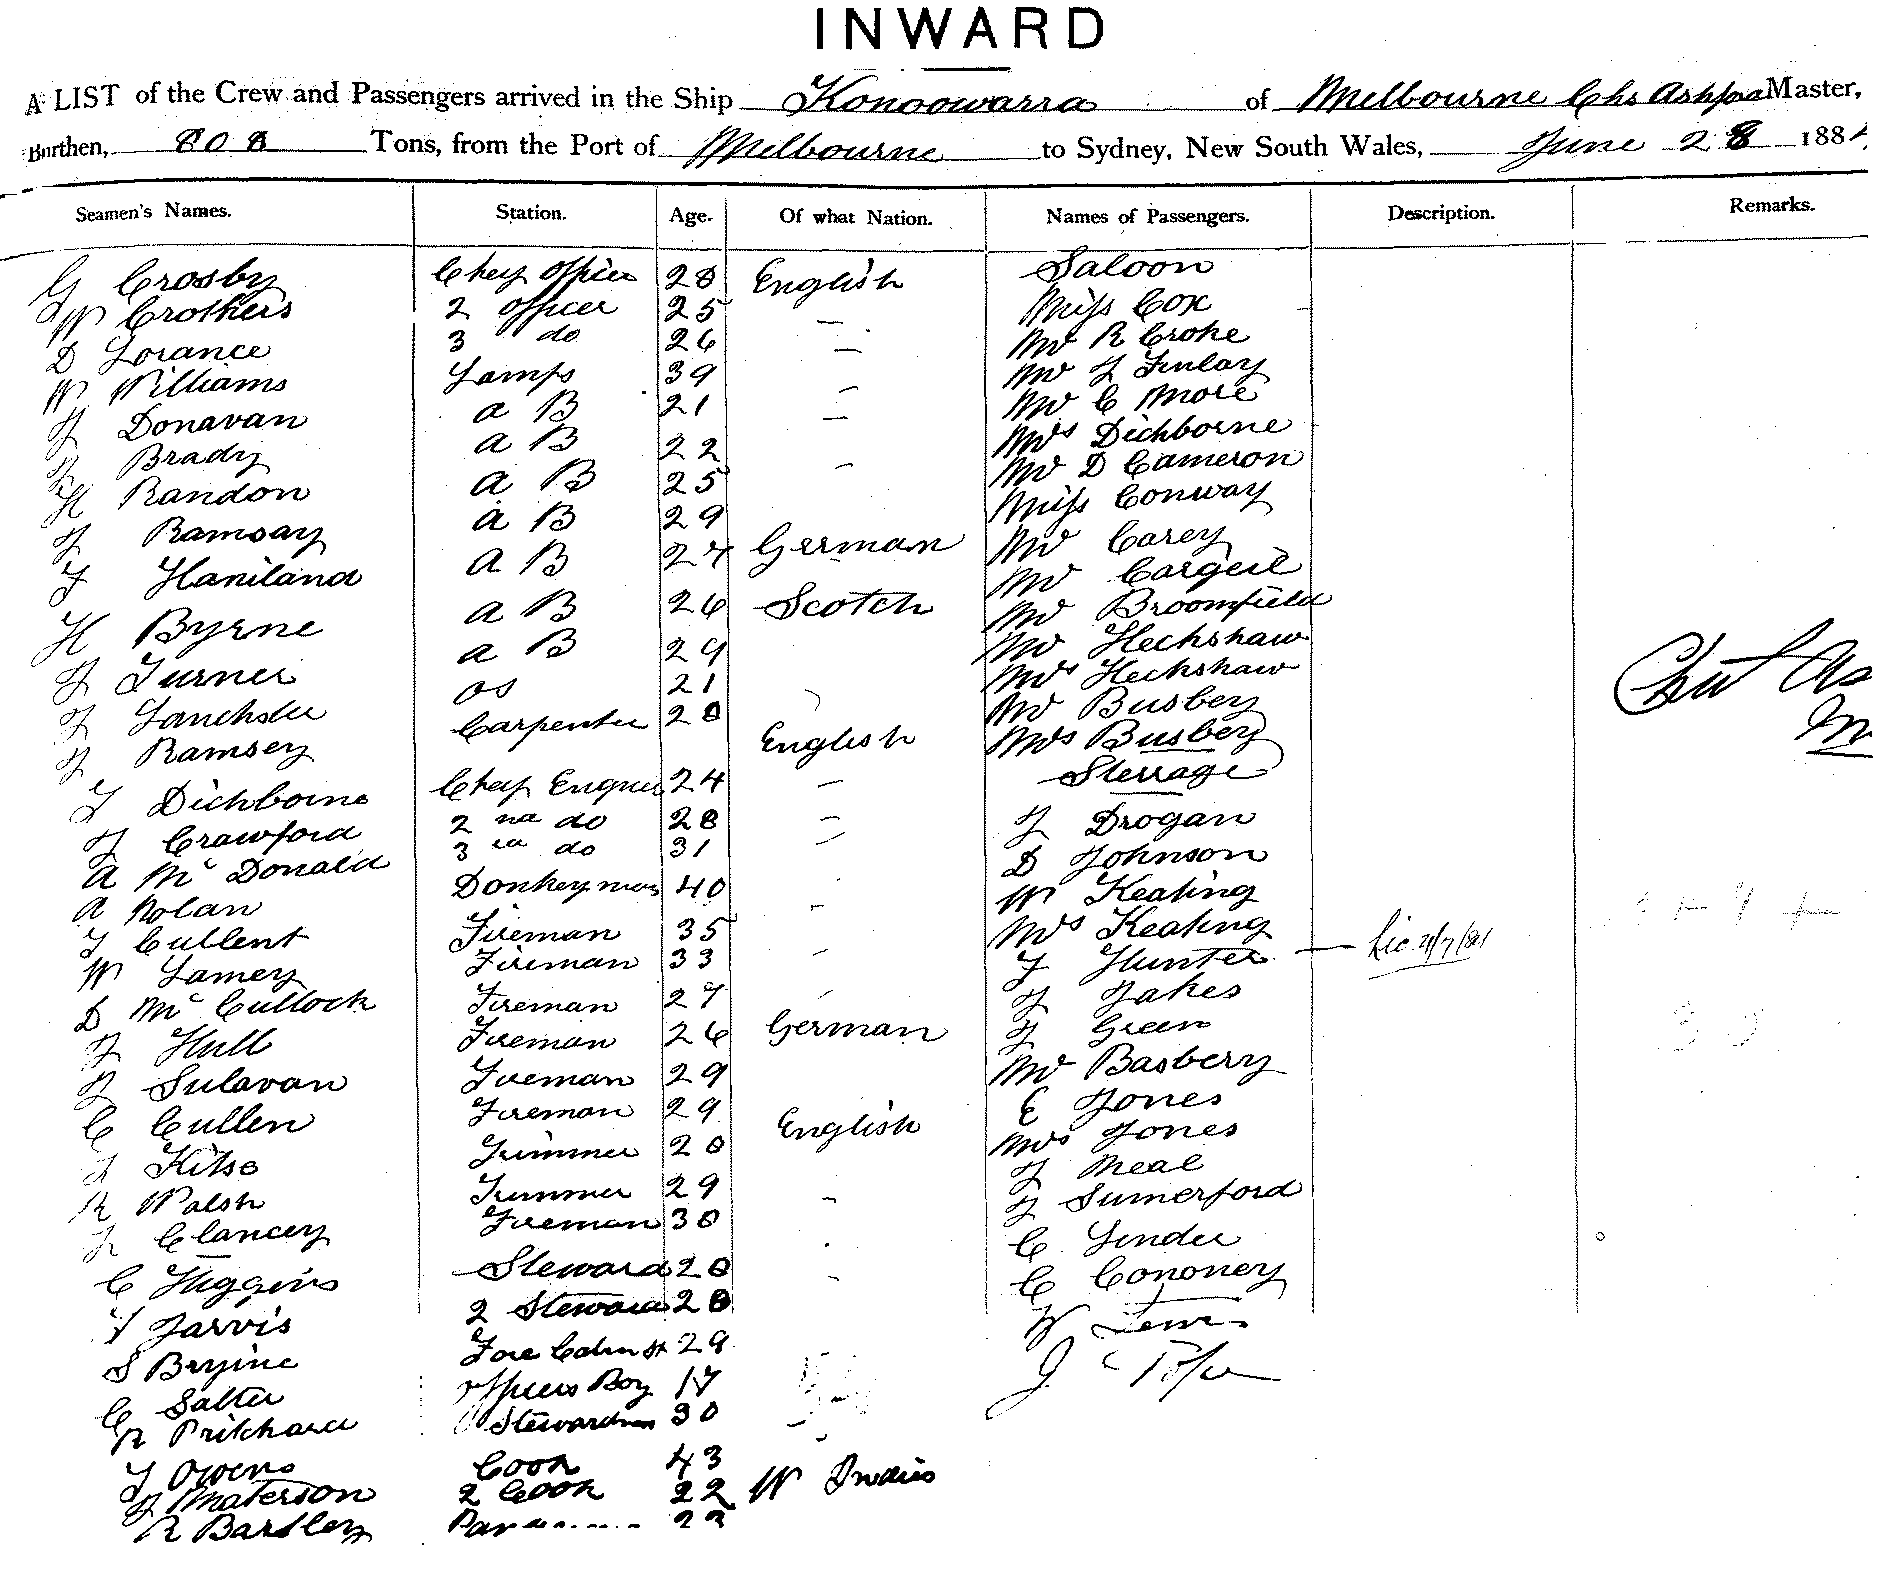 INWARD
A LIST of the Crew and Passengers arrived in the Ship Konoowarra of Melbourne Chs Master,
Burthen, 808 Tons, from the Port of Melbourne to Sydney, New South Wales, June 28 188
Seamen's Names. Station. Age. Of what Nation. Names of Passengers. Description. Remarks.
G Crosby Chief Officer 28 English Saloon
W Crothers 2 officer 25 Miss Cox
D Lorance 3 do 26 — Mr R Croke
W Williams Lamps 39 — Mr J Finlay
J Donavan a B 21 — Mr C More
Brady a B 22 — Mrs Dichborne
H Randon a B 25 — Mr D Cameron
J Ramsay a B 29 Miss Conway
F Haniland a B 27 German Mr Carey
H Byrne a B 26 Scotch Mr Cargeil
J Turner a B 29 Mr Broomfield
J os 21 Mr Heckshaw
J Ramsey Carpenter 28 Mrs Heckshaw
Mr Busbey
English Mrs Busbey
T Dichborne Chief 24 — Sterrage
J Crawford 2nd do 28 — J Drogan
A Mc Donald 3rd do 31 — D Johnson
A Nolan Donkeyman 40 W Keating
T Cullent Fireman 35 - Mrs Keating
W Lamey Fireman 33 - F Hunter — Lic
D Mc Cullock Fireman 27 J Jakes
J Hull Fireman 26 German J Green
J Sulavan Fireman 29 Mr Basberry
C Cullen Fireman 29 English E Jones
Kitso Trimmer 20 Mrs Jones
R Walsh Trimmer 29 - J Neal
Clancey Fireman 30 J Sumerford
C Higgins Steward 20 - C
T Jarvis 2 Steward 28 C Cononey
S Bryine Fore Cabin St 29 W Lewis
C Salter Officers Boy 17 J
R Prichard Stewardess 30
T Owens Cook 43
J Materson 2 Cook 22 W Indies
R Bartley 22